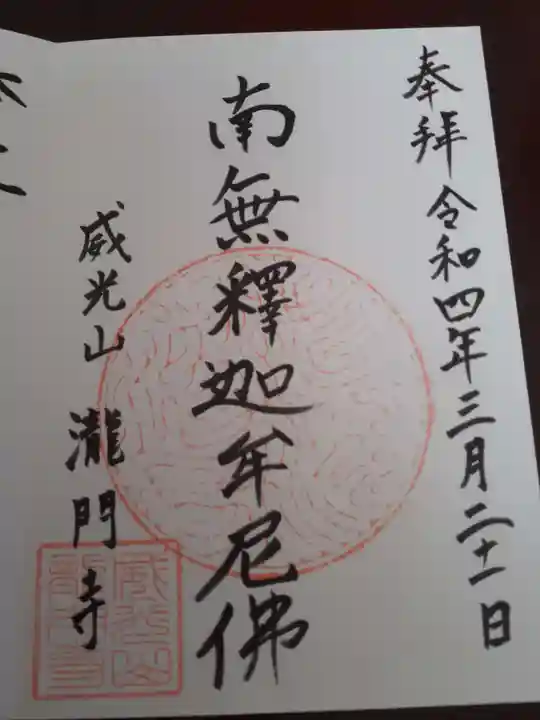 奉拜 令和四年三月二十一日
南無釋迦牟尼佛
威光山 瀧門寺